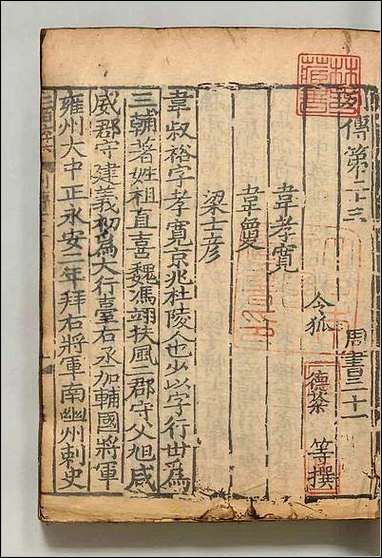 傳第二十三
周書三十一
令狐
德棻
等撰
韋孝寬
韋敻
梁士彦
韋叔裕字孝寬京兆杜陵人也少以字行世爲
三輔著姓祖直喜魏馮翊扶風二郡守父旭武
威郡守建義初爲大行臺右丞加輔國將軍
雍州大中正永安二年拜右將軍南幽州刺史